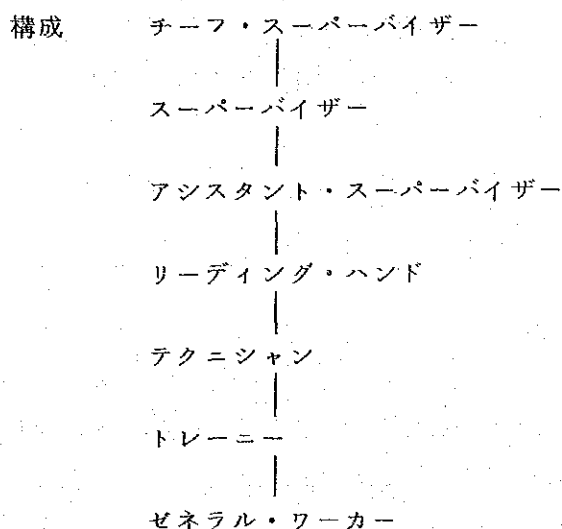 構成 チーフ・スーパーバイザー
スーパーバイザー
アシスタント・スーパーバイザー
リーディング・ハンド
テクニシャン
トレーニー
ゼネラル・ワーカー